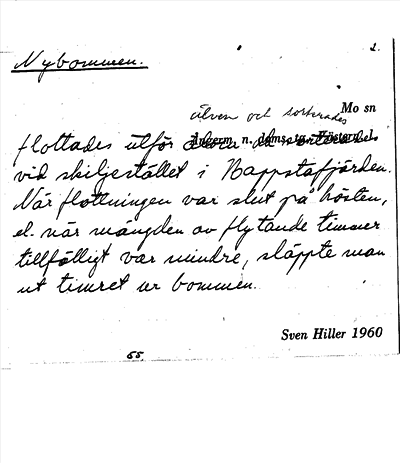 Nybommen.
2.
Mo sn
älven och sorterades
Ångerm. n. doms. tg. Västern. l.
flottades utför
vid skiljestället i Nappstafjärden.
När flottningen var slut på hösten,
el. när mängden av flytande timmer
tillfälligt var mindre, släppte man
ut timret ur bommen.
Sven Hiller 1960
55.